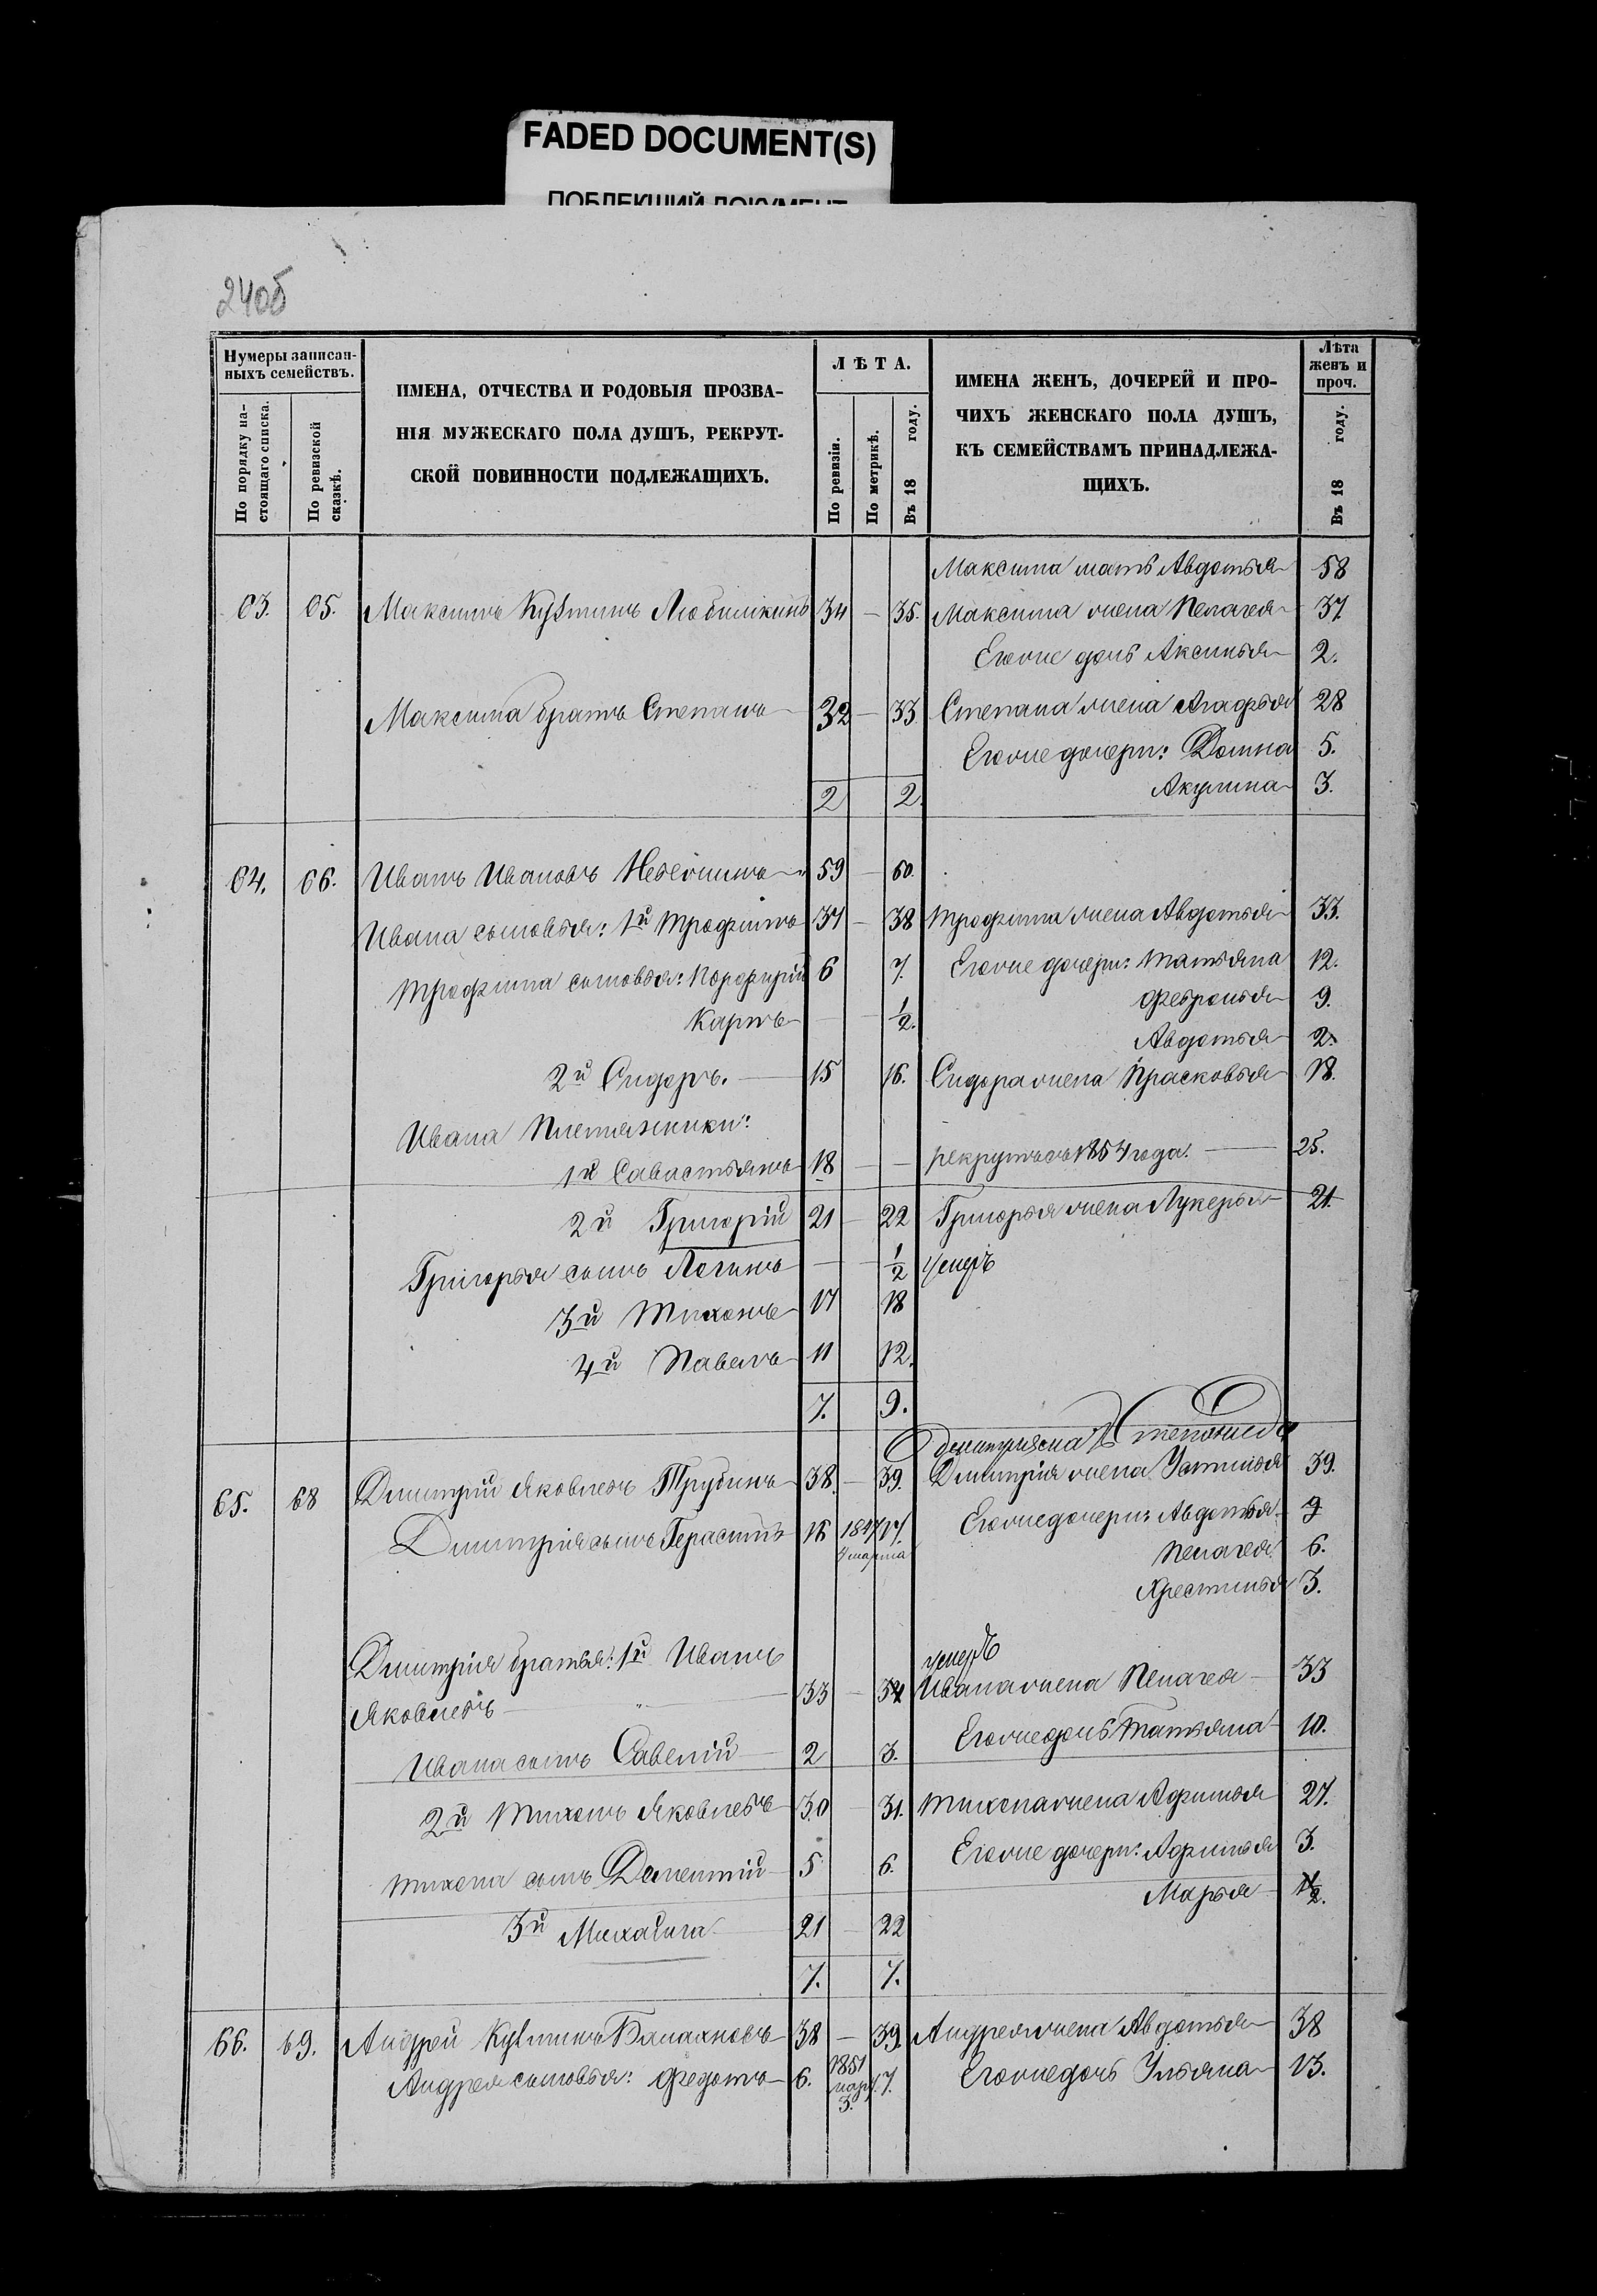 FADED DOCUMENT(S)
ПОБЛЕКШИЙ ДОКУМЕНТ
240об
Нумеры записан-
ныхъ семействъ.
По порядку на-
стоящаго списка.
По ревизской
сказкѣ.
ИМЕНА, ОТЧЕСТВА И РОДОВЫЯ ПРОЗВА-
НІЯ МУЖЕСКАГО ПОЛА ДУШЪ, РЕКРУТ-
СКОЙ ПОВИННОСТИ ПОДЛЕЖАЩИХЪ.
ЛѢТА.
По ревизіи.
По метрикѣ.
Въ 18 году.
ИМЕНА ЖЕНЪ, ДОЧЕРЕЙ И ПРО-
ЧИХЪ ЖЕНСКАГО ПОЛА ДУШЪ,
КЪ СЕМЕЙСТВАМЪ ПРИНАДЛЕЖА-
ЩИХЪ.
Лѣта
женъ и
проч.
Въ 18 году.
Максима мать Авдотья 58
63. 65. Максимъ Кузминъ 34 — 35. Максима жена Пелагея 37.
Егоже дочь Аксинья 2.
Максима братъ Степанъ 32 — 33 Степана жена Агафья 28
Егоже дочери: Домна 5.
2 2. Акулина 3.
64. 66. Иванъ Ивановъ 59 — 60.
Ивана сыновья: 1й Трофимъ 37 — 38 Трофима жена Авдотья 33.
Трофима сыновья: Порфирій 6 7. Егоже дочери: Татьяна 12.
Карпъ — — 1/2. Февронья 9.
Авдотья 2.
2й Сидоръ. — 15 16. Сидора жена Прасковья 18.
Ивана Племянники:
1й Савастьянъ 18 — — рекрутъ съ 1854 года. — 25.
2й Григорій 21 — 22 Григорья жена Лукерья 21.
Григорья сынъ Логинъ — — 1/2 умеръ
3й Тихонъ 17 18
4й Павелъ 11 12.
7. 9.
65. 68 Дмитрій Яковлевъ Трубинъ 38. — 39. Дмитрія жена Устинья 39.
Дмитрія сынъ Герасимъ 16 1847 17. Егоже дочери: Авдотья 9
марта Пелагея 6.
Хрестинья 3.
Дмитрія братья: 1й Иванъ умеръ
Яковлевъ — 33 — 34 Ивана жена Пелагея — 33
Ивана сынъ Савелій 2 3. Егоже дочь Татьяна 10.
2й Тихонъ Яковлевъ 30 — 31. Тихона жена Афимья 27.
Тихона сынъ Дементій 5 6. Егоже дочери: Афимья 3.
Марья
3й Михайла 21 — 22
7. 7.
66. 69. Андрей Кузминъ Балахновъ 38 — 39. Андрея жена Авдотья 38
Андрея сыновья: Федотъ 6. 1851 март. 3. 7. Егоже дочь Ульяна 13.